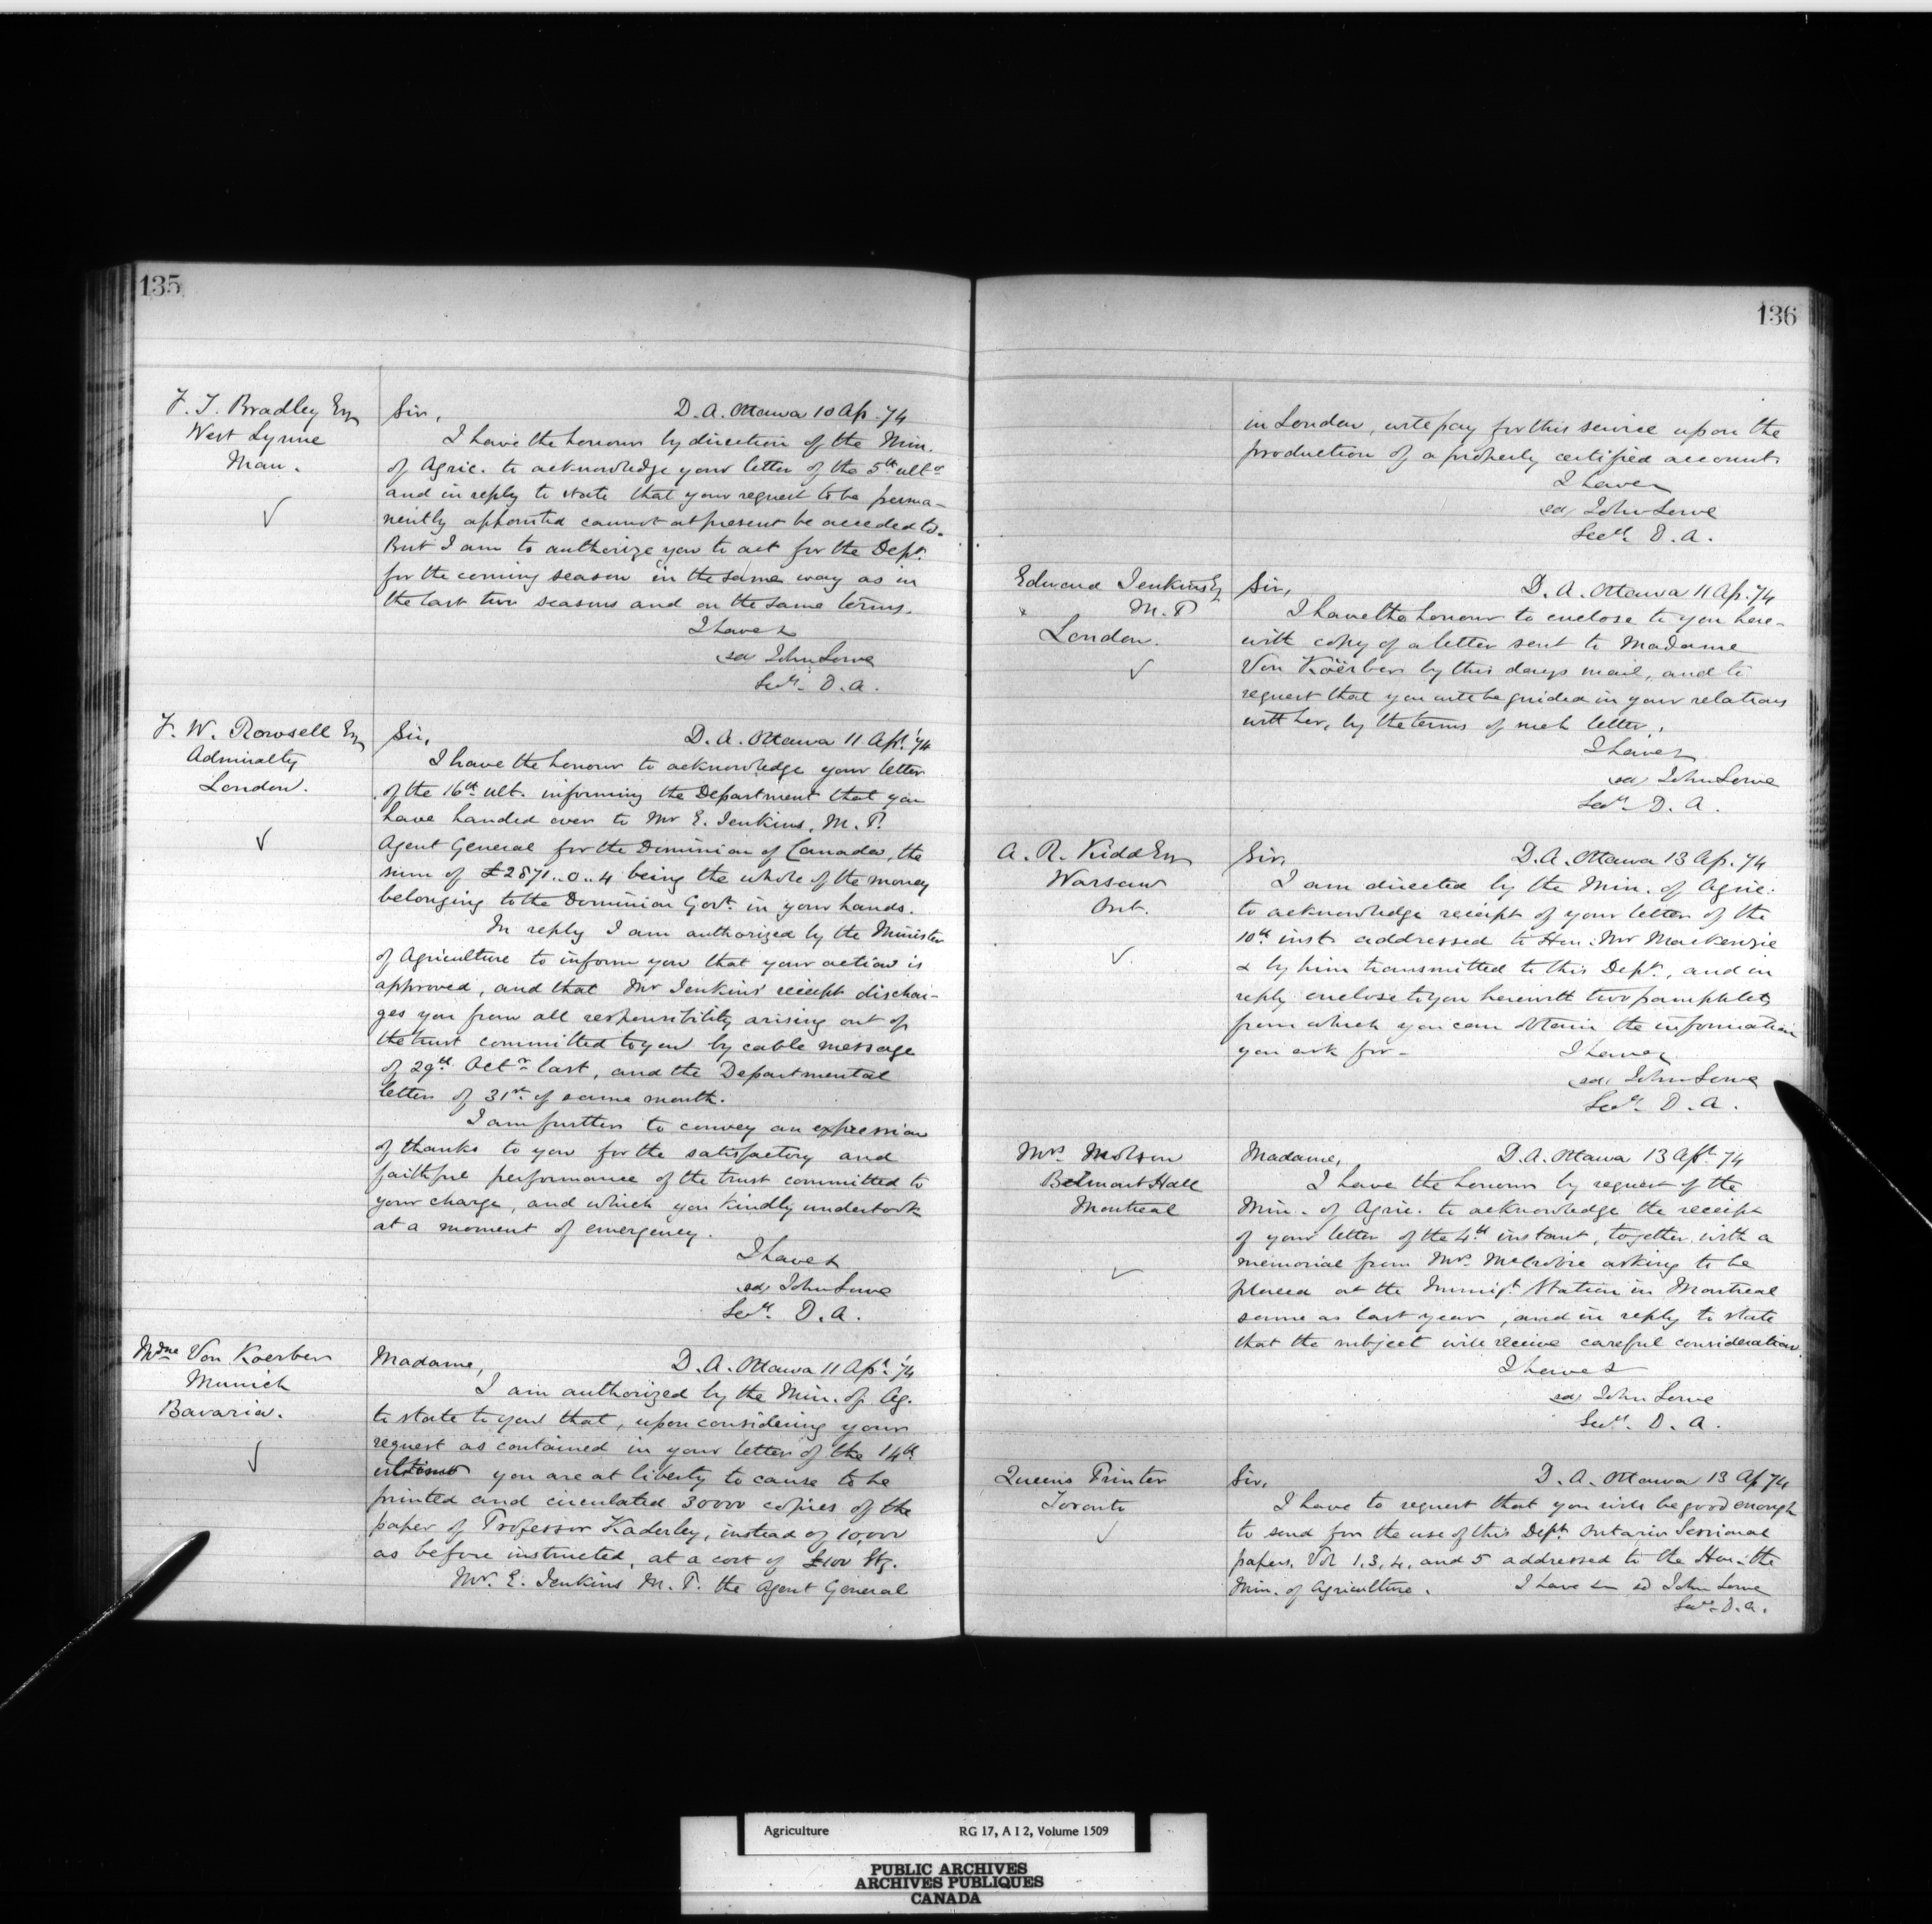 135
F. T. Bradley Esq
West Lynne
Man.
Sir, D. A. Ottawa 10 Ap. 74
I have the honour by direction of the Min.
of Agric. to acknowledge your letter of the 5th ulto
and in reply to state that your request to be perma-
nently appointed cannot at present be acceded to.
But I am to authorize you to act for the Dept.
for the coming season in the same way as in
the last two seasons and on the same terms.
I have &
sd John Lowe
Secy. D. A.
F. W. Rowsell Esq
Admiralty
London.
Sir, D. A. Ottawa 11 Apl. '74
I have the honour to acknowledge your letter
of the 16th ult. informing the Department that you
have handed over to Mr E. Jenkins, M. P.
Agent General for the Dominion of Canada, the
sum of £2871..0..4 being the whole of the money
belonging to the Dominion Govt. in your hands.
In reply I am authorized by the Minister
of Agriculture to inform you that your action is
approved, and that Mr Jenkins' receipt dischar-
ges you from all responsibility arising out of
the trust committed to you by cable message
of 29th Octr last, and the Departmental
letter of 31st of same month.
I am further to convey an expression
of thanks to you for the satisfactory and
faithful performance of the trust committed to
your charge, and which you kindly undertook
at a moment of emergency.
I have &
sd John Lowe
Secy. D. A.
Mdme Von Koerber
Munich
Bavaria.
Madame, D. A. Ottawa 11 Apl. '74
I am authorized by the Min. of Ag.
to state to you that, upon considering your
request as contained in your letter of the 14th
ultimo you are at liberty to cause to be
printed and circulated 30000 copies of the
paper of Professor Kaderley, instead of 10,000
as before instructed, at a cost of £100 Stg.
Mr. E. Jenkins M. P. the Agent General
136
in London, will pay for this service upon the
production of a properly certified account.
I have &
sd John Lowe
Secy. D. A.
Edward Jenkins Esq
M. P
London.
Sir, D. A. Ottawa 11 Ap. '74
I have the honour to enclose to you here-
with copy of a letter sent to Madame
Von Köerber by this days mail, and to
request that you will be guided in your relations
with her, by the terms of such letter.
I have &
sd John Lowe
Secy. D. A.
A. R. Kidd Esq
Warsaw
Ont.
Sir, D. A. Ottawa 13 Ap. 74
I am directed by the Min. of Agric.
to acknowledge receipt of your letter of the
10th inst. addressed to Hon: Mr Mackenzie
& by him transmitted to this Dept., and in
reply enclose to you herewith two pamphlets
from which you can obtain the information
you ask for - I have &
sd John Lowe
Secy. D. A.
Mrs. Molson
Belmont Hall
Montreal
Madame, D. A. Ottawa 13 Apl. 74
I have the honour by request of the
Min. of Agric. to acknowledge the receipt
of your letter of the 4th instant, together with a
memorial from Mrs. McCrobie asking to be
placed at the Immigt. Station in Montreal
same as last year, and in reply to state
that the subject will receive careful consideration.
I have &
sd John Lowe
Secy. D. A.
Queen's Printer
Toronto
Sir, D. A. Ottawa 13 Ap 74
I have to request that you will be good enough
to send for the use of this Dept. Ontario Sessional
papers, Vol 1, 3, 4, and 5 addressed to the Hon. the
Min. of Agriculture. I have &c sd John Lowe
Secy. D. A.
Agriculture RG 17, A I 2, Volume 1509
PUBLIC ARCHIVES
ARCHIVES PUBLIQUES
CANADA